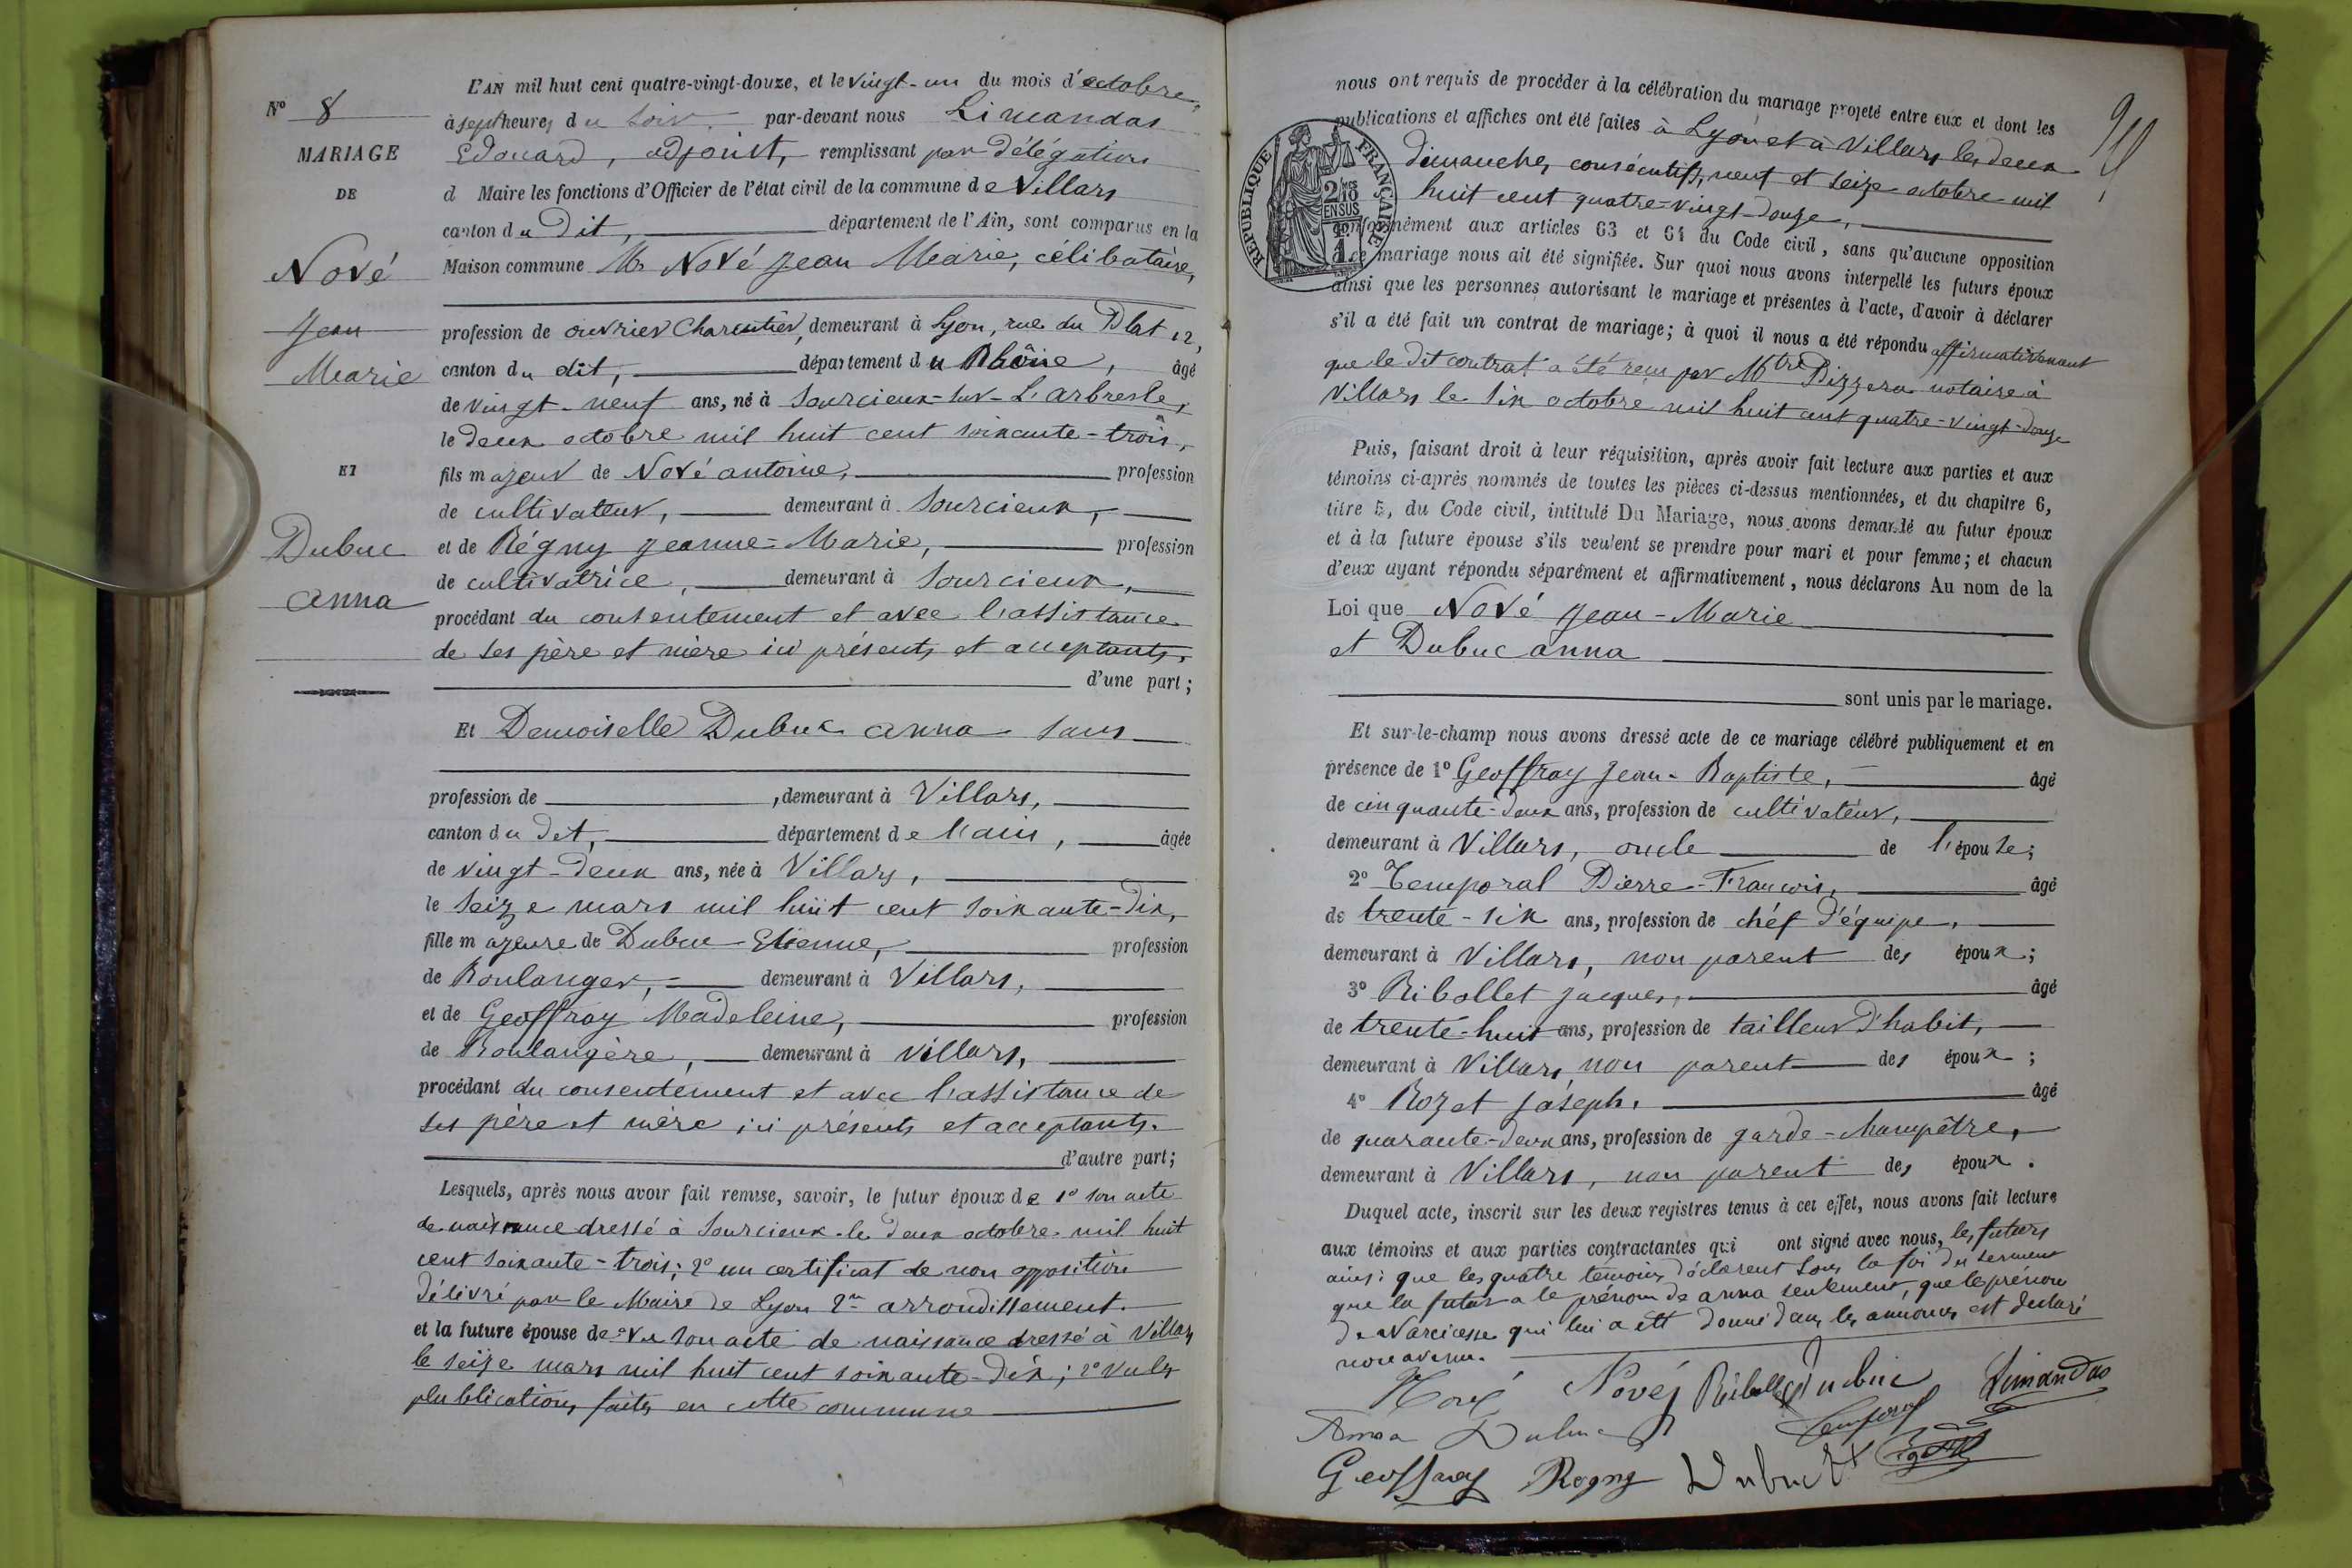 L'AN mil huit cent quatre-vingt-douze, et le vingt-un du mois d'octobre,
N° 8
à sept heures du soir, par-devant nous Limandas
MARIAGE
Edouard, adjoint, remplissant par délégation
DE
d Maire les fonctions d'Officier de l'état civil de la commune de Villars
canton du dit, département de l'Ain, sont comparus en la
Nové
Maison commune Mr Nové Jean Marie, célibataire,
Jean
profession de ouvrier Charcutier, demeurant à Lyon, rue du Plat 12,
Marie
canton du dit, département du Rhône, âgé
de vingt-neuf ans, né à Sourcieux-sur-L'arbresle,
le deux octobre mil huit cent soixante-trois,
ET
fils majeur de Nové antoine, profession
de cultivateur, demeurant à Sourcieux,
Dubuc
et de Régny Jeanne-Marie, profession
de cultivatrice, demeurant à Sourcieux,
anna
procédant du consentement et avec l'assistance
de ses père et mère ici présents et acceptants,
d'une part;
Et Demoiselle Dubuc anna sans
profession de , demeurant à Villars,
canton du dit, département de l'ain, âgée
de vingt-deux ans, née à Villars,
le seize mars mil huit cent soixante-dix,
fille majeure de Dubuc Etienne, profession
de Boulanger, demeurant à Villars,
et de Geoffray Madeleine, profession
de Boulangère, demeurant à villars,
procédant du consentement et avec l'assistance de
ses père et mère ici présents et acceptants.
d'autre part;
Lesquels, après nous avoir fait remise, savoir, le futur époux de 1° son acte
de naissance dressé à Sourcieux le deux octobre mil huit
cent soixante-trois; 2° un certificat de non opposition
délivré par le Maire de Lyon 2me arrondissement.
et la future épouse de Vu son acte de naissance dressé à Villars
le seize mars mil huit cent soixante-dix; 2° Vu les
publications faites en cette commune
nous ont requis de procéder à la célébration du mariage projeté entre eux et dont les
publications et affiches ont été faites à Lyon et à Villars les deux
dimanches consécutifs, neuf et seize octobre mil
huit cent quatre-vingt-douze,
conformément aux articles 63 et 64 du Code civil, sans qu'aucune opposition
à ce mariage nous ait été signifiée. Sur quoi nous avons interpellé les futurs époux
ainsi que les personnes autorisant le mariage et présentes à l'acte, d'avoir à déclarer
s'il a été fait un contrat de mariage; à quoi il nous a été répondu affirmativement
que le dit contrat a été reçu par Mtre Pizzera notaire à
Villars le six octobre mil huit cent quatre-vingt-douze
REPUBLIQUE FRANÇAISE
2/10
EN SUS
Puis, faisant droit à leur réquisition, après avoir fait lecture aux parties et aux
témoins ci-après nommés de toutes les pièces ci-dessus mentionnées, et du chapitre 6,
titre 5, du Code civil, intitulé Du Mariage, nous avons demandé au futur époux
et à la future épouse s'ils veulent se prendre pour mari et pour femme; et chacun
d'eux ayant répondu séparément et affirmativement, nous déclarons Au nom de la
Loi que Nové Jean-Marie
et Dubuc anna
sont unis par le mariage.
Et sur-le-champ nous avons dressé acte de ce mariage célébré publiquement et en
présence de 1° Geoffray Jean-Baptiste, âgé
de cinquante-deux ans, profession de cultivateur,
demeurant à Villars, oncle de l'épouse;
2° Temporal Pierre-François, âgé
de trente-six ans, profession de chéf d'équipe,
demeurant à Villars, non parent des époux;
3° Ribollet Jacques, âgé
de trente-huit ans, profession de tailleur d'habit,
demeurant à Villars, non parent des époux;
4° Rozet Joseph, âgé
de quarante-deux ans, profession de garde-champêtre,
demeurant à Villars, non parent des époux.
Duquel acte, inscrit sur les deux registres tenus à cet effet, nous avons fait lecture
aux témoins et aux parties contractantes qui ont signé avec nous, les futurs
ainsi que les quatre témoins déclarent sous la foi du serment
que la future a le prénom de anna seulement, que le prénom
de Narcisse qui lui a été donné dans les annonces est déclaré
non avenu.
Nové Nové Ribollet Dubuc Limandas
Anna Dubuc Temporal
Geoffray Régny Dubuc